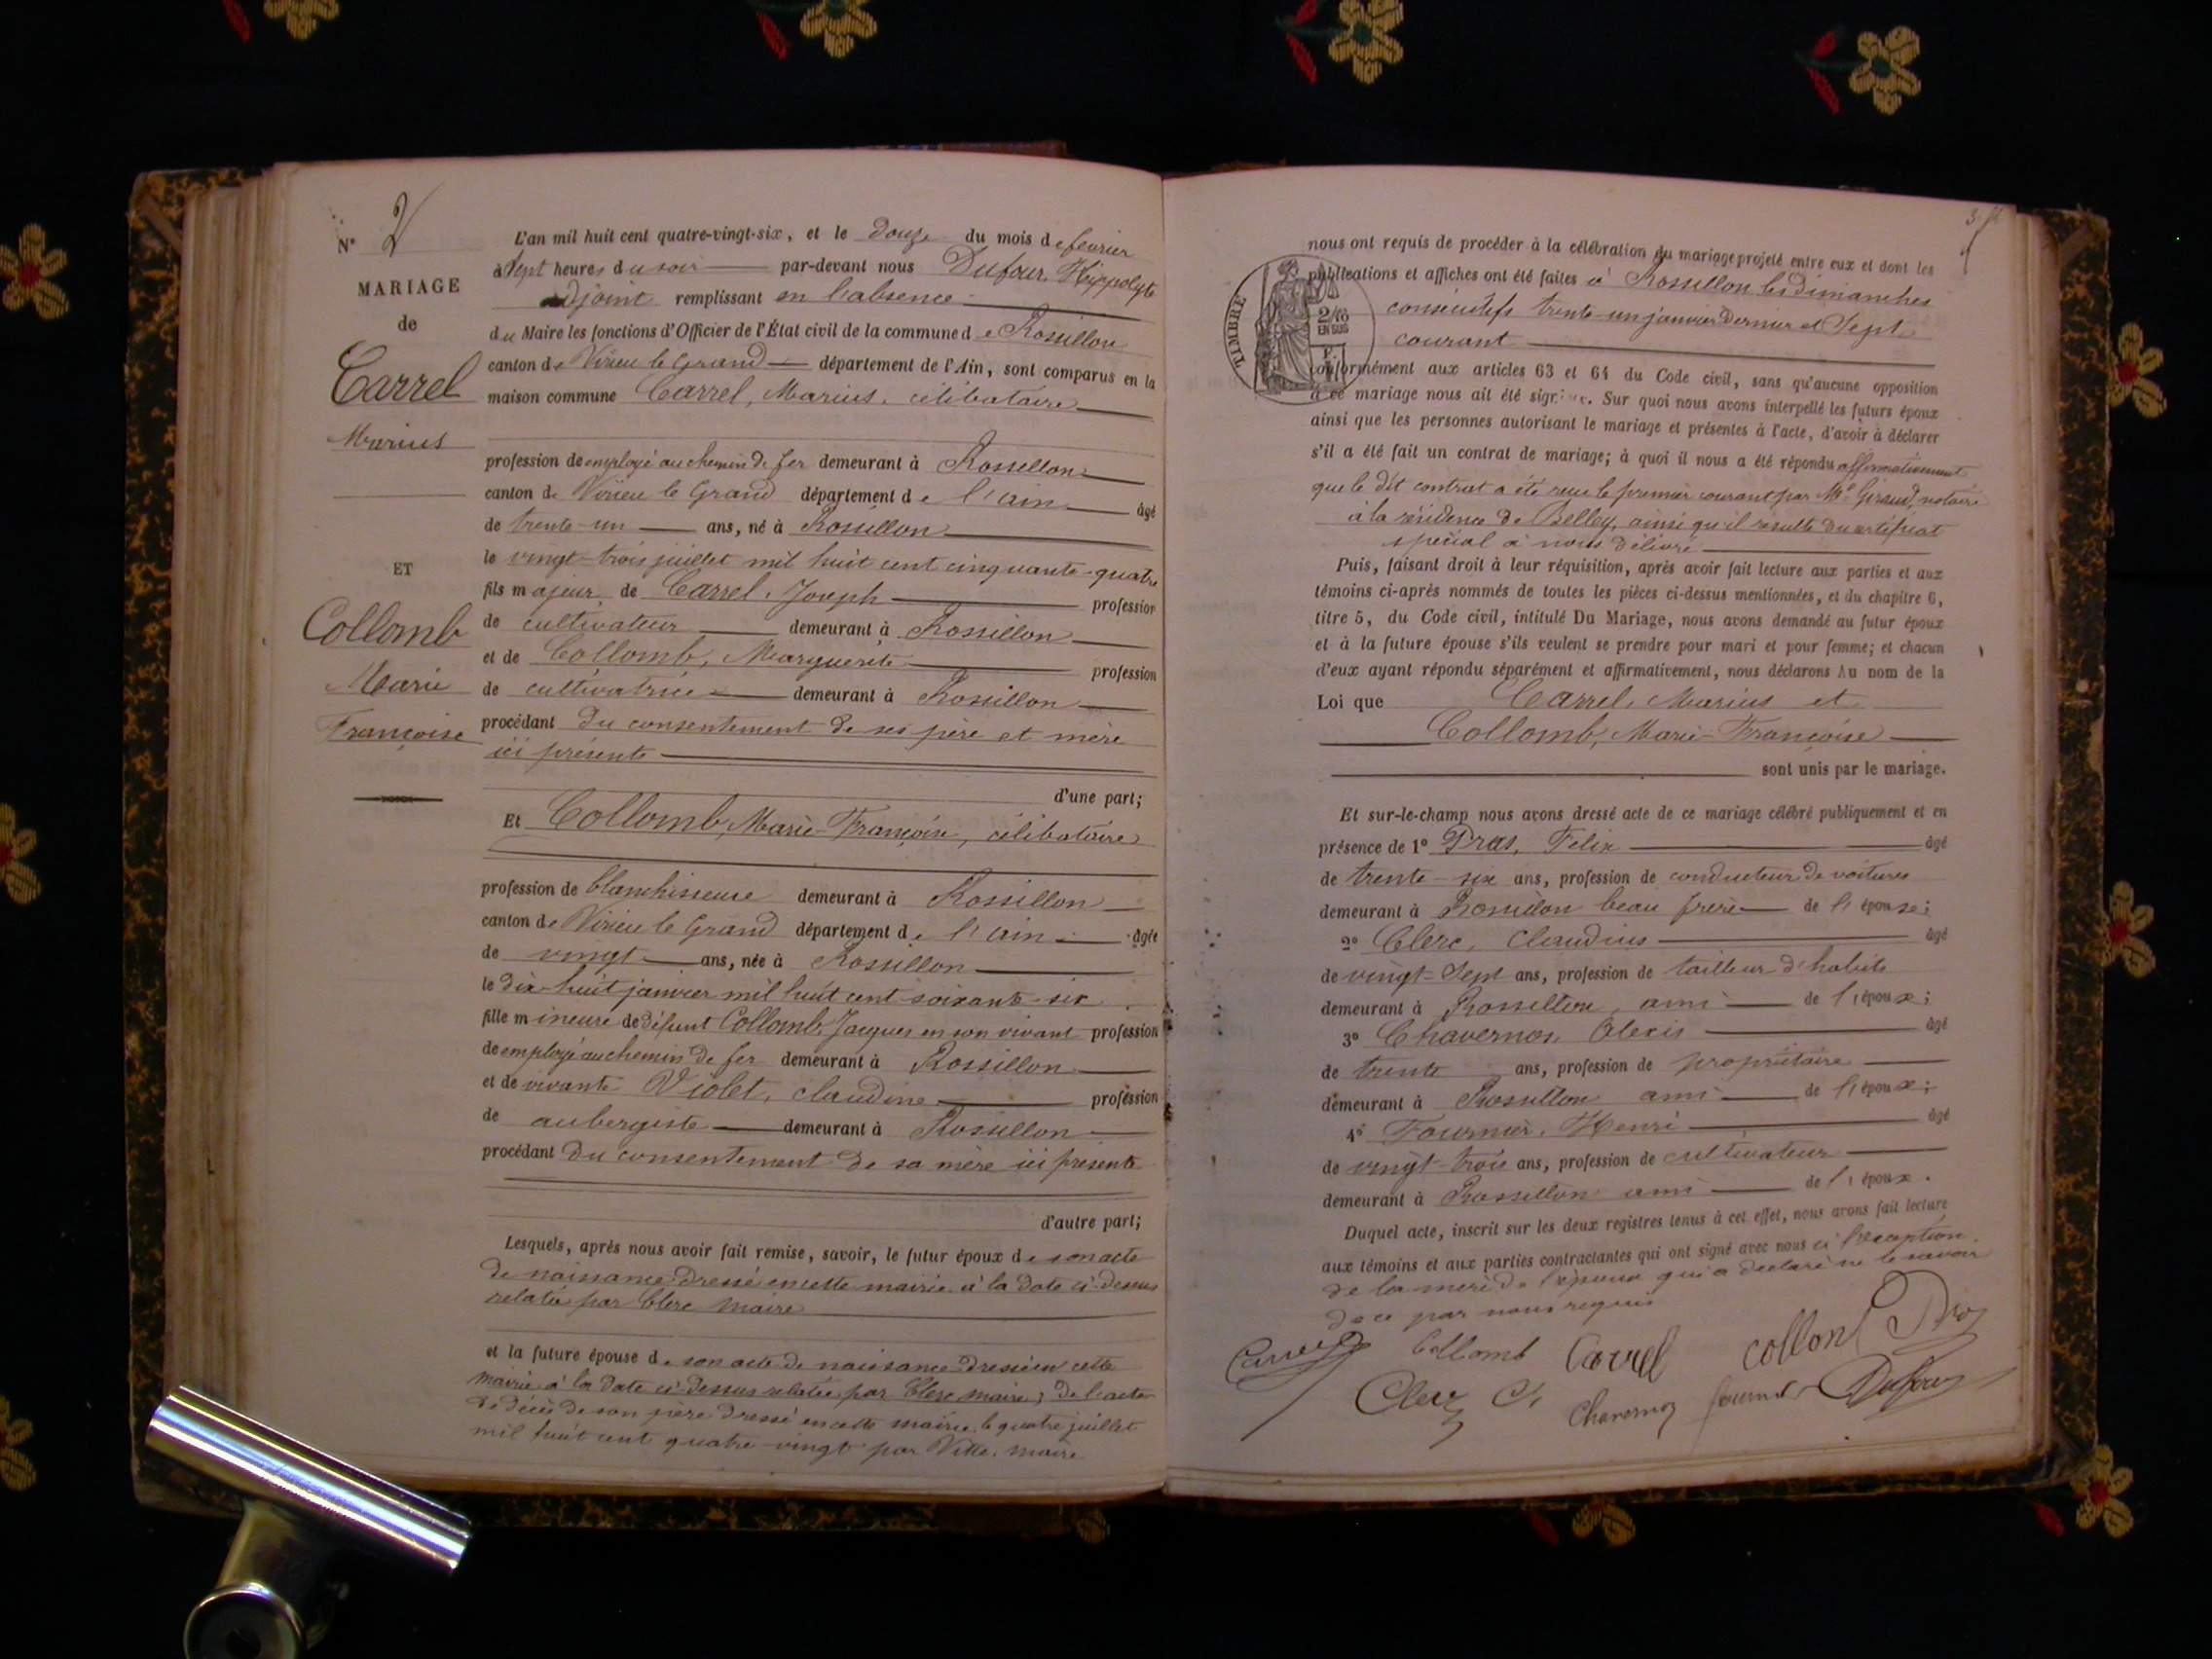 N° 2
MARIAGE
de
Carrel
Marius
ET
Collomb
Marie
Françoise
L'an mil huit cent quatre-vingt-six, et le douze du mois de fevrier
à Sept heures du soir par-devant nous Dufour, Hippolyte
adjoint remplissant en l'absence
du Maire les fonctions d'Officier de l'État civil de la commune de Rossillon
canton de Virieu le Grand département de l'Ain, sont comparus en la
maison commune Carrel, Marius, célibataire
profession de employé au chemin de fer demeurant à Rossillon
canton de Virieu le Grand département de l'ain âgé
de trente-un ans, né à Rossillon
le vingt-trois juillet mil huit cent cinquante-quatre
fils majeur de Carrel, Joseph profession
de cultivateur demeurant à Rossillon
et de Collomb, Marguerite profession
de cultivatrice demeurant à Rossillon
procédant du consentement de ses père et mère
ici présents
d'une part;
Et Collomb, Marie-Françoise, célibataire
profession de blanchisseuse demeurant à Rossillon
canton de Virieu le Grand département de l'ain âgée
de vingt ans, née à Rossillon
le dix-huit janvier mil huit cent soixante-six
fille mineure de défunt Collomb Jacques en son vivant profession
de employé au chemin de fer demeurant à Rossillon
et de vivante Violet, claudine profession
de aubergiste demeurant à Rossillon
procédant du consentement de sa mère ici présente
d'autre part;
Lesquels, après nous avoir fait remise, savoir, le futur époux de son acte
de naissance dressé en cette mairie à la date ci-dessus
relatée par Clerc maire
et la future épouse de son acte de naissance dressé en cette
mairie à la date ci-dessus relatée par Clerc maire; de l'acte
de décès de son père dressé en cette mairie le quatre juillet
mil huit cent quatre-vingt par Ville, maire
nous ont requis de procéder à la célébration du mariage projeté entre eux et dont les
publications et affiches ont été faites à Rossillon les dimanches
consécutifs trente-un janvier dernier et Sept
courant
TIMBRE
2/10
EN SUS
conformément aux articles 63 et 64 du Code civil, sans qu'aucune opposition
à ce mariage nous ait été signifiée. Sur quoi nous avons interpellé les futurs époux
ainsi que les personnes autorisant le mariage et présentes à l'acte, d'avoir à déclarer
s'il a été fait un contrat de mariage; à quoi il nous a été répondu affirmativement
que le dit contrat a été reçu le premier courant par Me Giraud, notaire
à la résidence de Belley, ainsi qu'il résulte du certificat
spécial à nous délivré
Puis, faisant droit à leur réquisition, après avoir fait lecture aux parties et aux
témoins ci-après nommés de toutes les pièces ci-dessus mentionnées, et du chapitre 6,
titre 5, du Code civil, intitulé Du Mariage, nous avons demandé au futur époux
et à la future épouse s'ils veulent se prendre pour mari et pour femme; et chacun
d'eux ayant répondu séparément et affirmativement, nous déclarons Au nom de la
Loi que Carrel, Marius et
Collomb, Marie-Françoise
sont unis par le mariage.
Et sur-le-champ nous avons dressé acte de ce mariage célébré publiquement et en
présence de 1° Pras, Félix âgé
de trente-six ans, profession de conducteur de voitures
demeurant à Rossillon beau frère de l'épouse;
2° Clerc, Claudius âgé
de vingt-Sept ans, profession de tailleur d'habits
demeurant à Rossillon, ami de l'époux;
3° Chavernoz, Alexis âgé
de trente ans, profession de propriétaire
demeurant à Rossillon ami de l'époux;
4° Fournier, Henri âgé
de vingt-trois ans, profession de cultivateur
demeurant à Rossillon ami de l'époux.
Duquel acte, inscrit sur les deux registres tenus à cet effet, nous avons fait lecture
aux témoins et aux parties contractantes qui ont signé avec nous à l'exception
de la mère de l'époux qui a déclaré ne le savoir
de ce par nous requis
Collomb Carrel collomb
Clerc Cl Chavernoz fournier Dufour